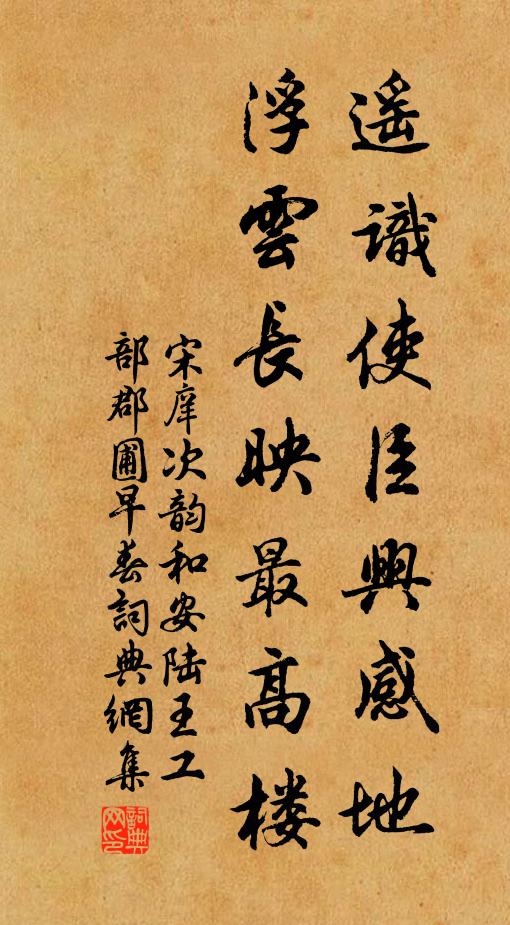 遥識使臣興感地
浮雲長映最高楼
宋庠次韵和安陆王工
部郡圃早春詞典網集
詞典网印